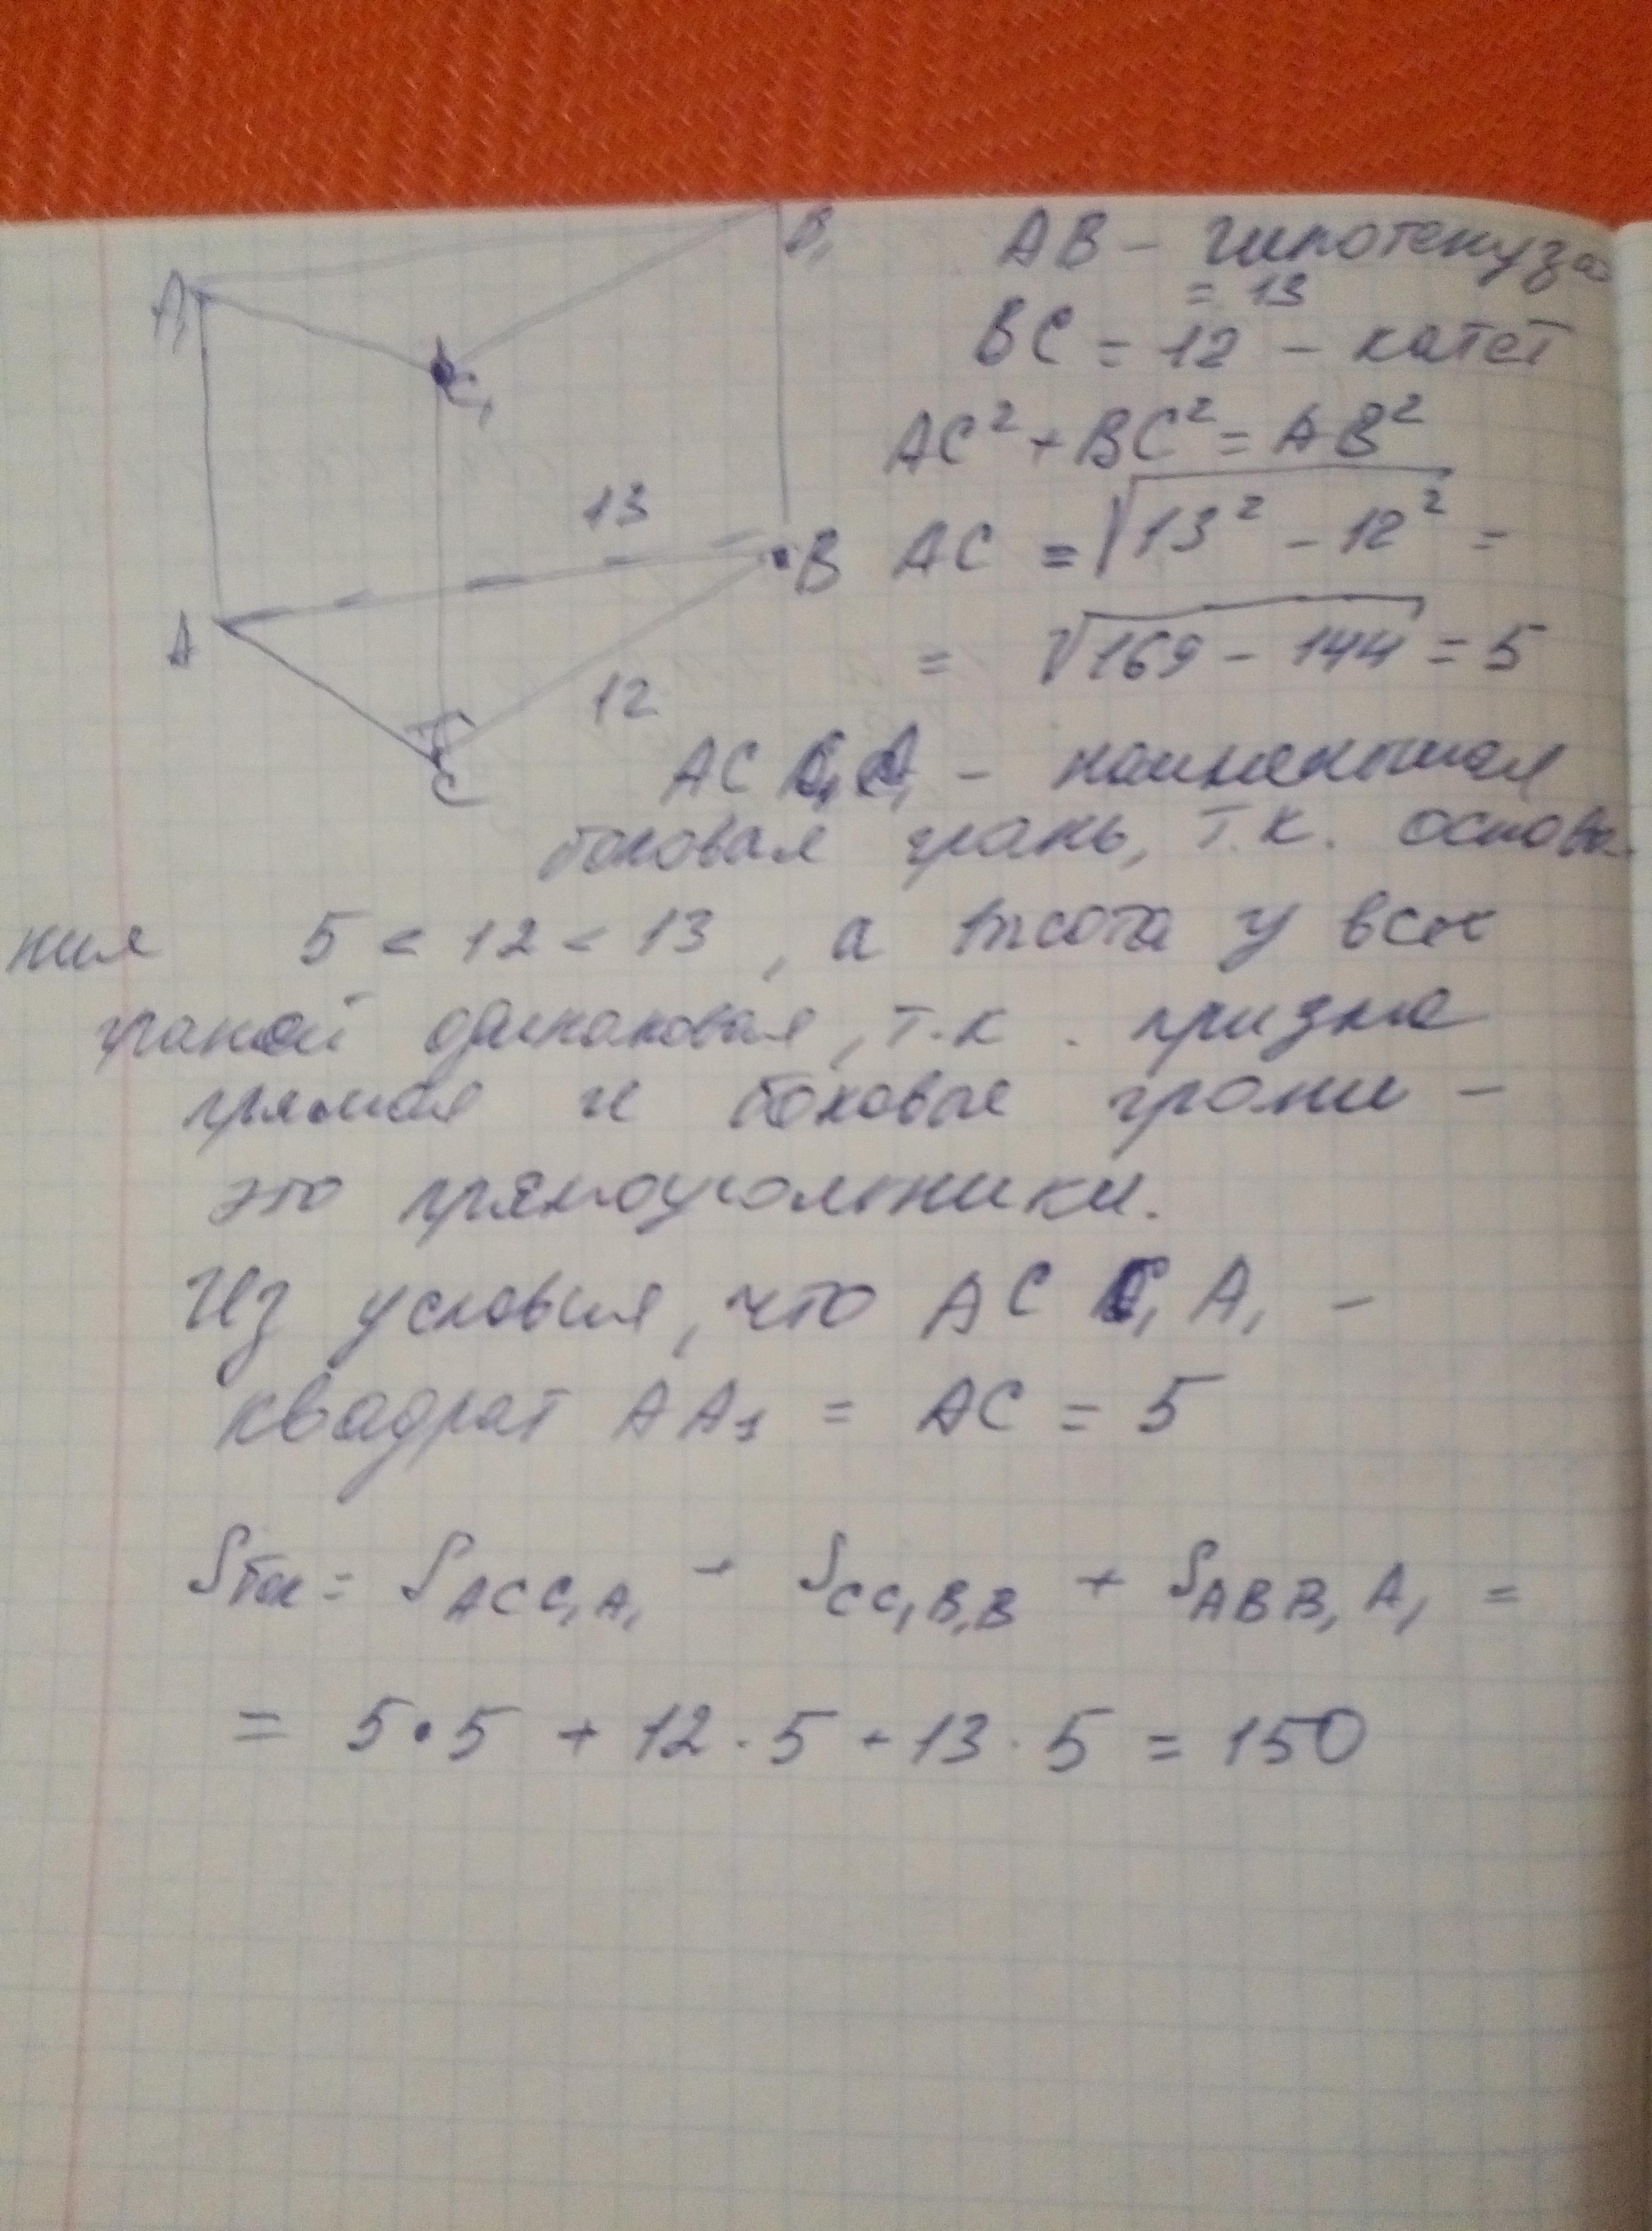 A₁
B₁
C₁
13
A
B
12
C
AB – гипотенуза
= 13
BC = 12 – катет
AC² + BC² = AB²
AC = √13² – 12² =
= √169 – 144 = 5
ACC₁A₁ – наименьшая
боковая грань, т.к. основа
ния 5 < 12 < 13, а высота у всех
граней одинаковая, т.к. призма
прямая и боковые грани –
это прямоугольники.
Из условия, что ACC₁A₁ –
квадрат AA₁ = AC = 5
Sбок = SACC₁A₁ + SCC₁B₁B + SABB₁A₁ =
= 5·5 + 12·5 + 13·5 = 150